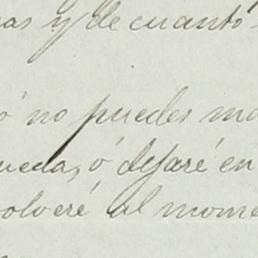 as y de cuanto
ó no puedes ma
ueda, ó dejaré en
volveré al mome